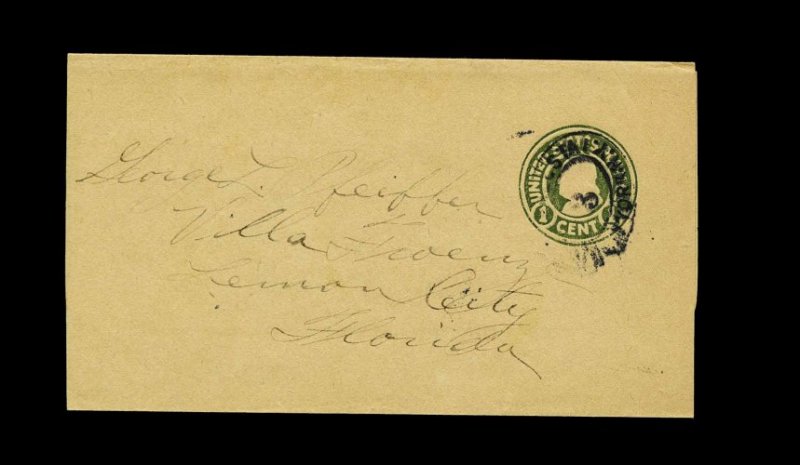 George L. Pfeiffer
Villa
Lemon City
Florida
UNITED STATES
1 CENT
3